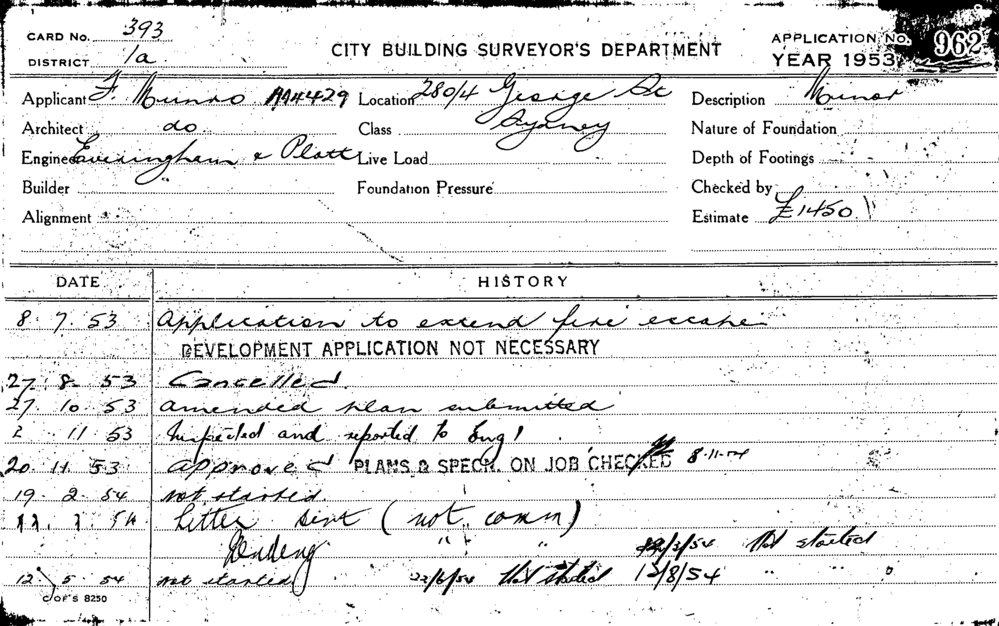 CARD No. 393
DISTRICT 1a
CITY BUILDING SURVEYOR'S DEPARTMENT
APPLICATION No. 962
YEAR 1953
Applicant F. Munro MA4429
Location 280/4 George St
Description Minor
Architect do
Class Sydney
Nature of Foundation
Engineer Everingham & Platt
Live Load
Depth of Footings
Builder "
Foundation Pressure
Checked by
Alignment
Estimate £1450
DATE HISTORY
8. 7. 53 Application to extend fire escape
DEVELOPMENT APPLICATION NOT NECESSARY
27. 8. 53 Cancelled.
27. 10. 53 amended plan submitted
2 11. 53 Inspected and reported to Eng!
20. 11. 53 approved PLANS & SPECN. ON JOB CHECKED 8.11.54
19. 2. 54 not started.
54 Letter sent (not comm)
Pending " " /3/54 Not started
12. 5. 54 not started 22/6/54 Not started 12/8/54 " "
C OF S 8250